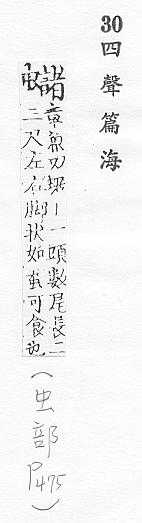 30四聲篇海
蠩
章魚切蜛丨一頭數尾長二
三尺左右脚狀如蚕可食也
(虫部 P475)